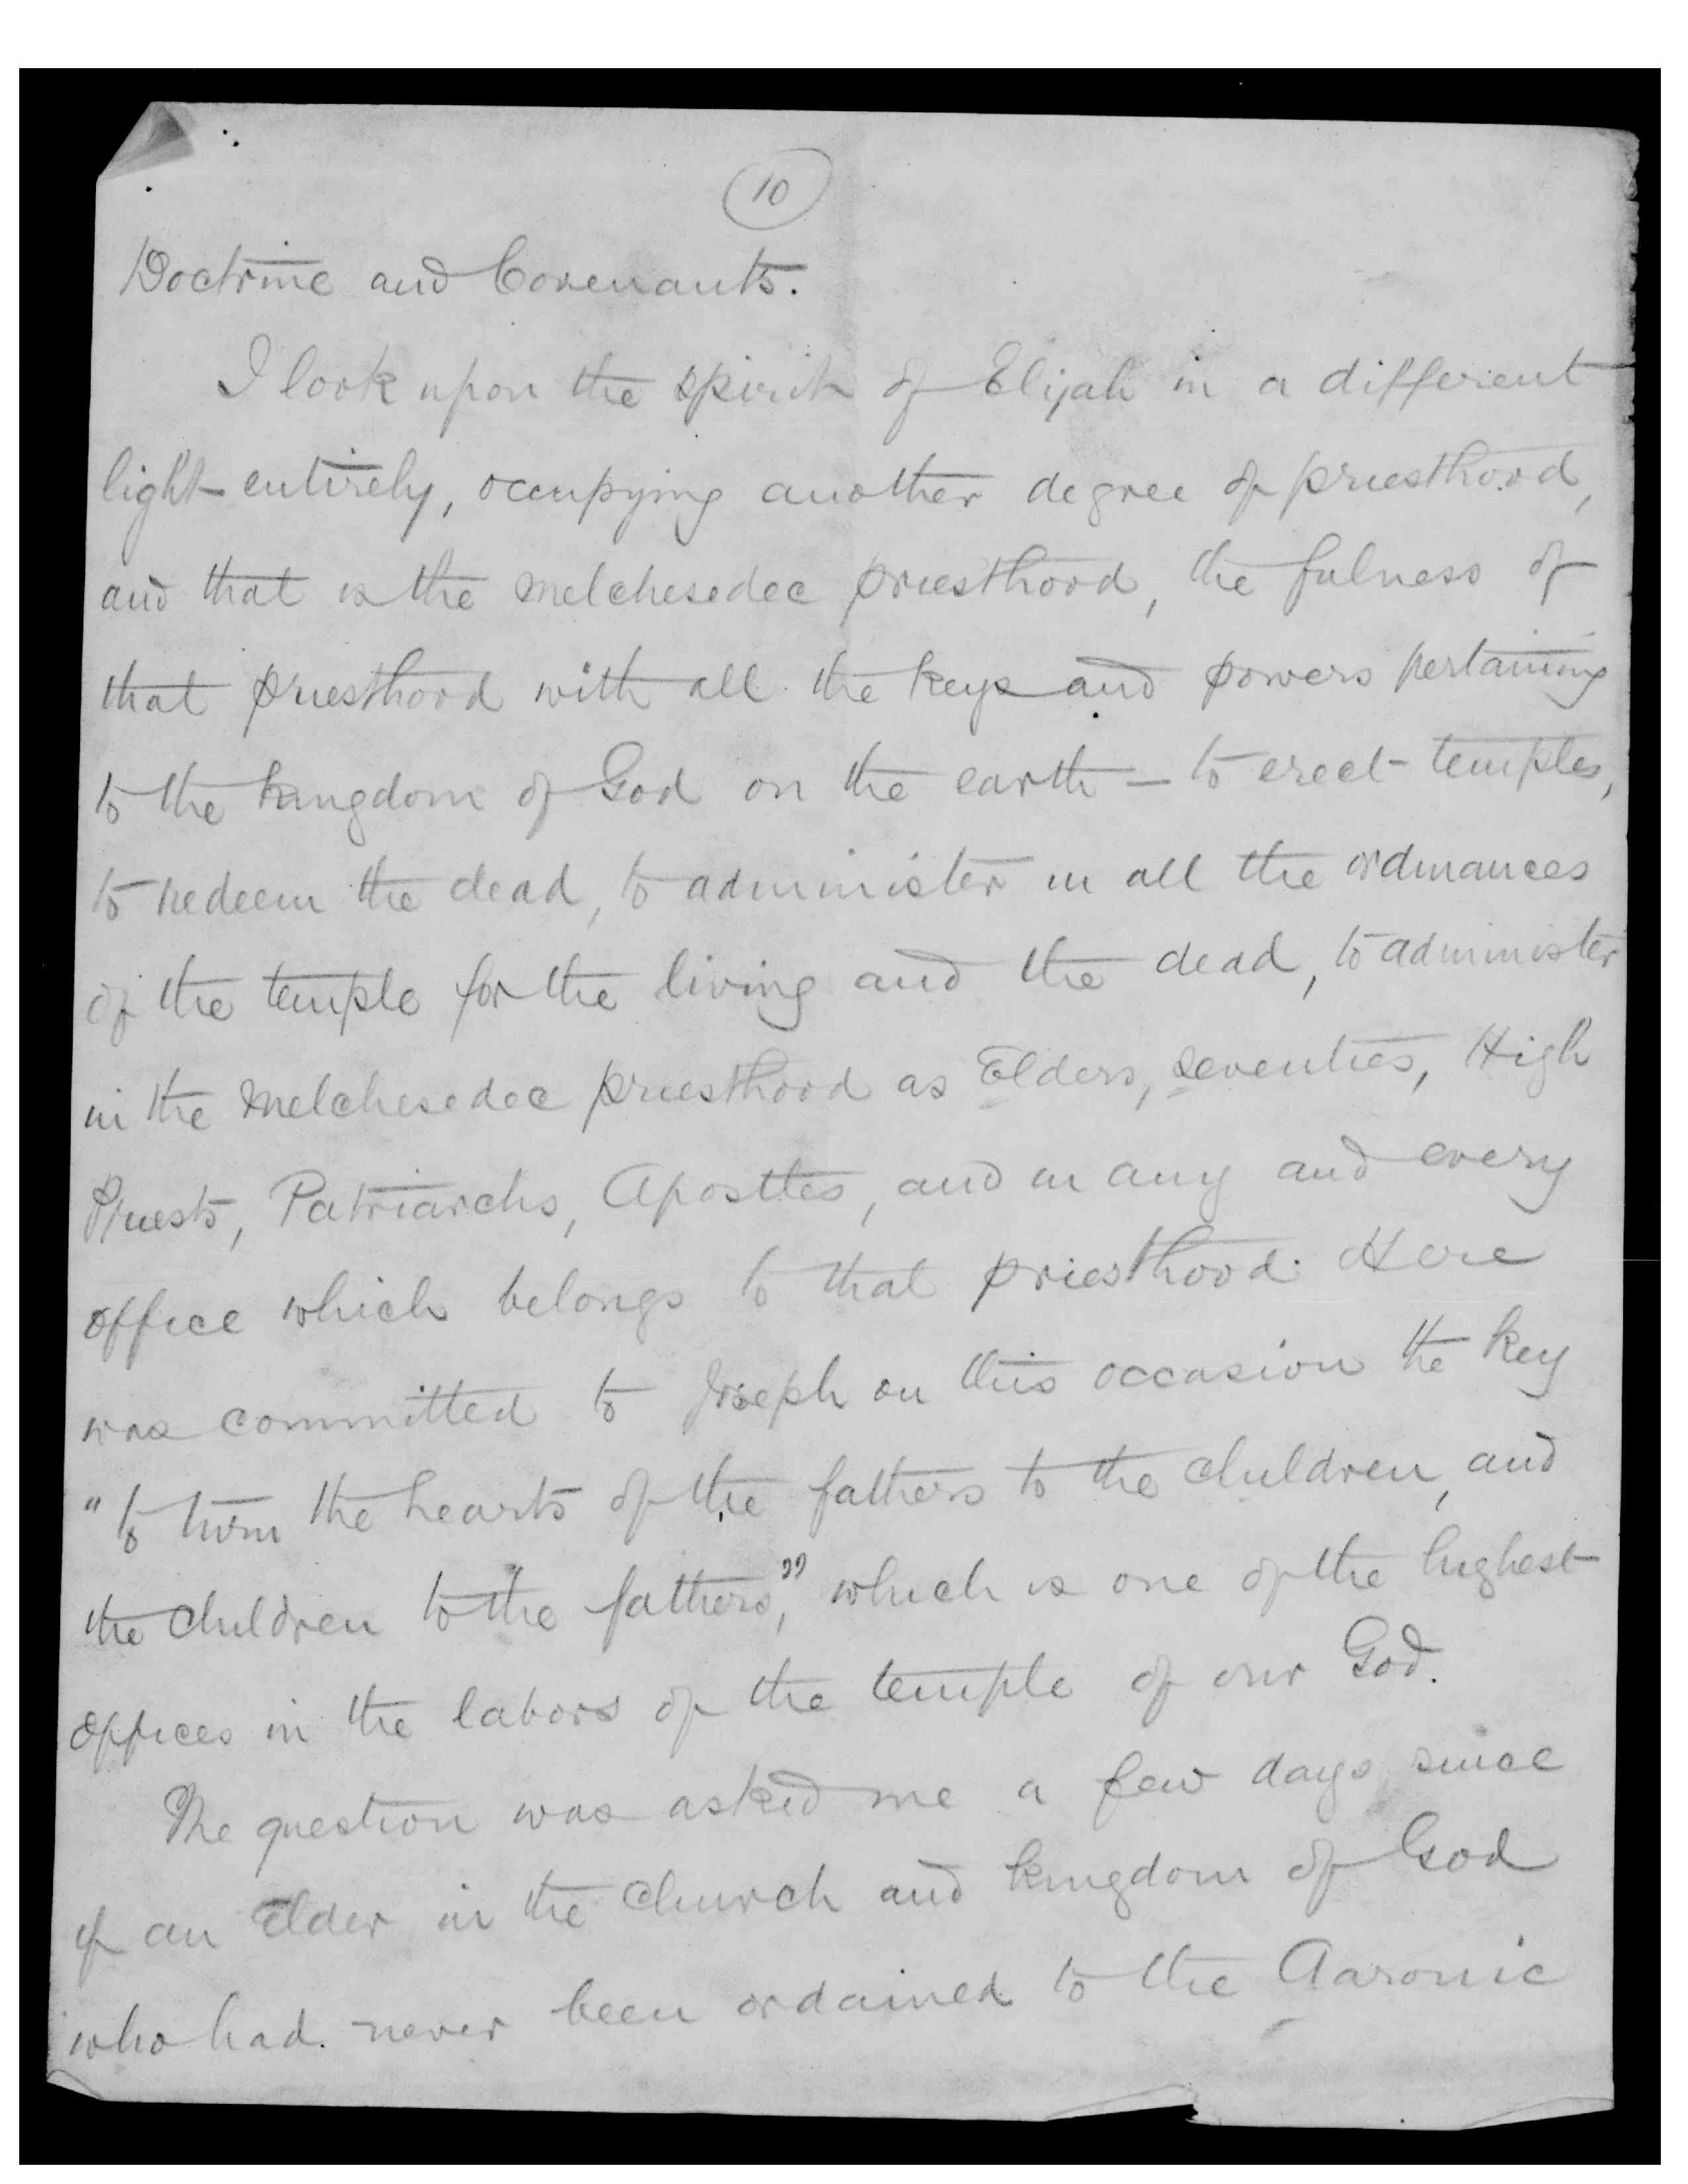 10
Doctrine and Covenants.
I look upon the spirit of Elijah in a different
light entirely, occupying another degree of priesthood,
and that is the melchesedec priesthood, the fulness of
that priesthood with all the keys and powers pertaining
to the kingdom of God on the earth — to erect temples,
to redeem the dead, to administer in all the ordinances
of the temple for the living and the dead, to administer
in the melchesedec priesthood as Elders, seventies, High
Priests, Patriarchs, Apostles, and in any and every
office which belongs to that priesthood. Here
was committed to Joseph on this occasion the key
"to turn the hearts of the fathers to the children, and
the children to the fathers," which is one of the highest
offices in the labors of the temple of our God.
The question was asked me a few days since
if an Elder in the church and kingdom of God
who had never been ordained to the Aaronic